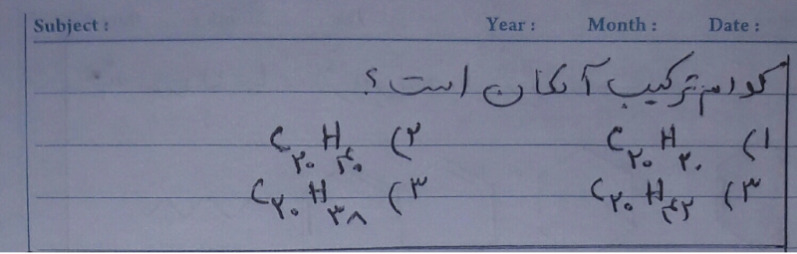 Subject : Year : Month : Date :
کدام ترکیب آلکان است ؟
۱) C۲۰H۲۰ ۲) C۲۰H۴۰
۳) C۲۰H۴۲ ۳) C۲۰H۳۸